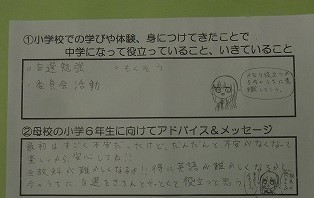 ①小学校での学びや体験、身につけてきたことで
中学になって役立っていること、いきていること
・自選勉強
・もくそう
・委員会活動
②母校の小学6年生に向けてアドバイス&メッセージ
最初はすごく不安だったけど、だんだんと不安がなくなって
楽しいから安心してね!!
全教科が難しくなるよ!! 特に英語が難しくなるから
今のうちに自選をきちんとやっとくと役立つと思う